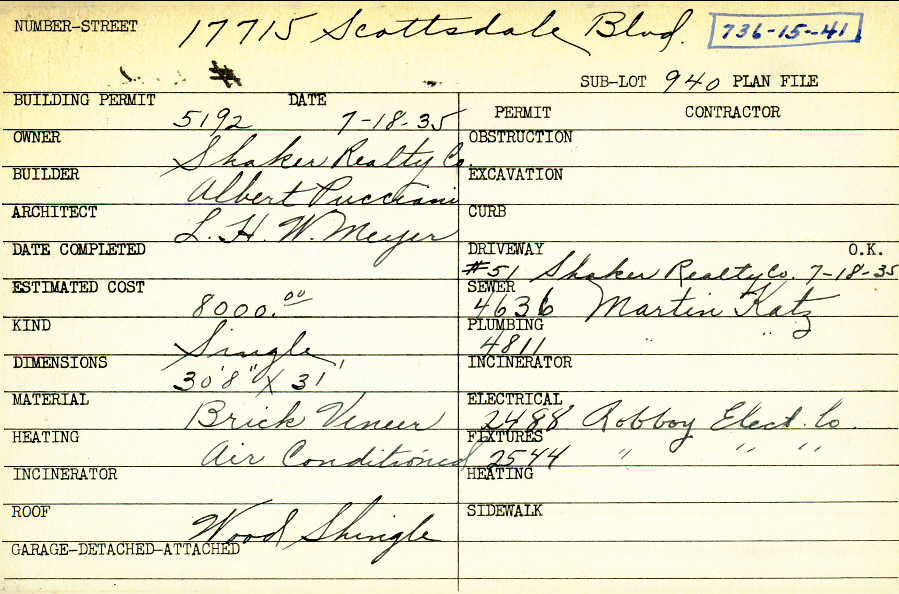 NUMBER-STREET 17715 Scottsdale Blvd. 736-15-41
# SUB-LOT 940 PLAN FILE
BUILDING PERMIT DATE PERMIT CONTRACTOR
5192 7-18-35
OWNER Shaker Realty Co. OBSTRUCTION
BUILDER Albert Pucciani EXCAVATION
ARCHITECT L. H. W. Meyer CURB
DATE COMPLETED DRIVEWAY O.K.
#51 Shaker Realty Co. 7-18-35
ESTIMATED COST 8000.00 SEWER 4636 Martin Katz
KIND Single PLUMBING 4811 " "
DIMENSIONS 30'8" X 31' INCINERATOR
MATERIAL Brick Veneer ELECTRICAL 2488 Robboy Elect. Co.
HEATING Air Conditioned FIXTURES 2544 " " "
INCINERATOR HEATING
ROOF Wood Shingle SIDEWALK
GARAGE-DETACHED-ATTACHED